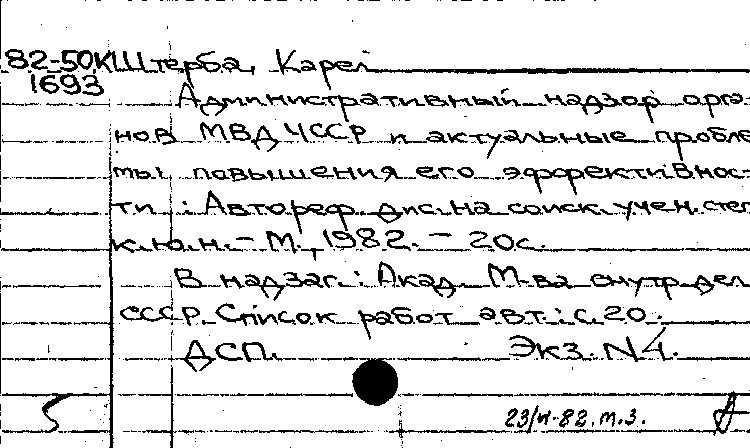 82-50К Штерба, Карел
1693
Административный надзор орга-
нов МВД ЧССР и актуальные пробле-
мы повышения его эффективнос-
ти : Автореф. дис. на соиск. учен. степ.
к.ю.н. - М., 1982. - 20с.
В надзаг.: Акад. М-ва внутр. дел
СССР. Список работ авт.: с.20.
ДСП. Экз. N4.
5 82. т.з.